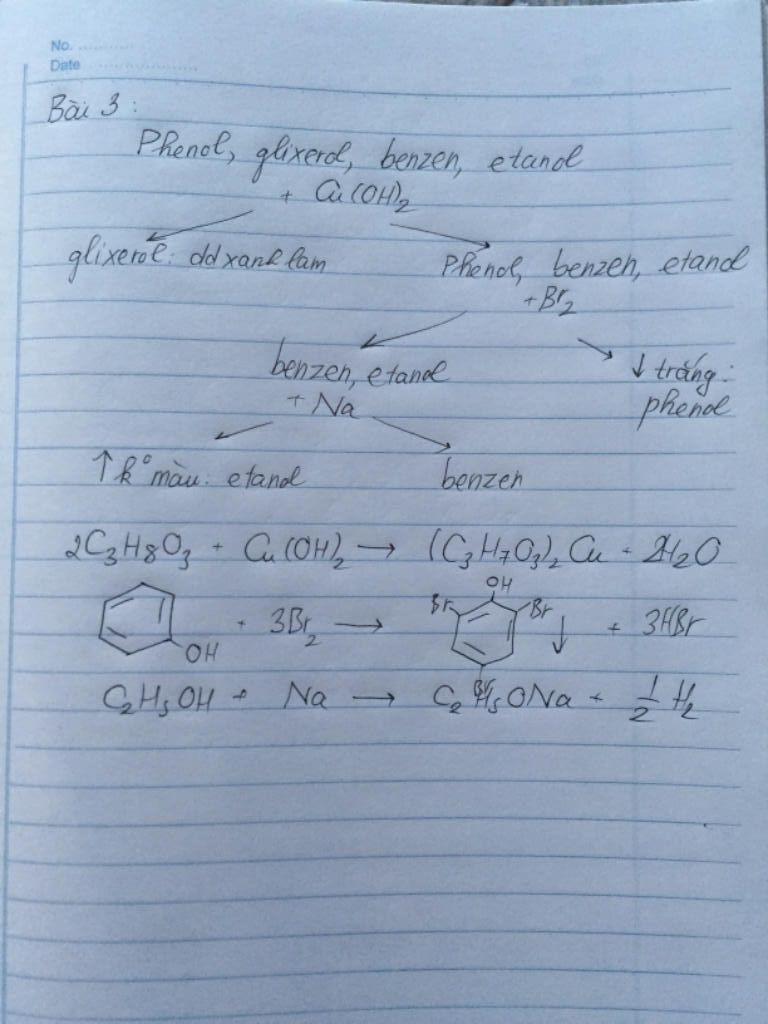 No. ............
Date ........................
Bài 3 :
Phenol, glixerol, benzen, etanol
+ Cu(OH)2
glixerol: dd xanh lam
Phenol, benzen, etanol
+ Br2
benzen, etanol
+ Na
↓ trắng:
phenol
↑ k° màu: etanol
benzen
2C3H8O3 + Cu(OH)2 → (C3H7O3)2Cu + 2H2O
OH
+ 3Br2 →
OH
Br
Br
Br
↓ + 3HBr
C2H5OH + Na → C2H5ONa + 1/2 H2